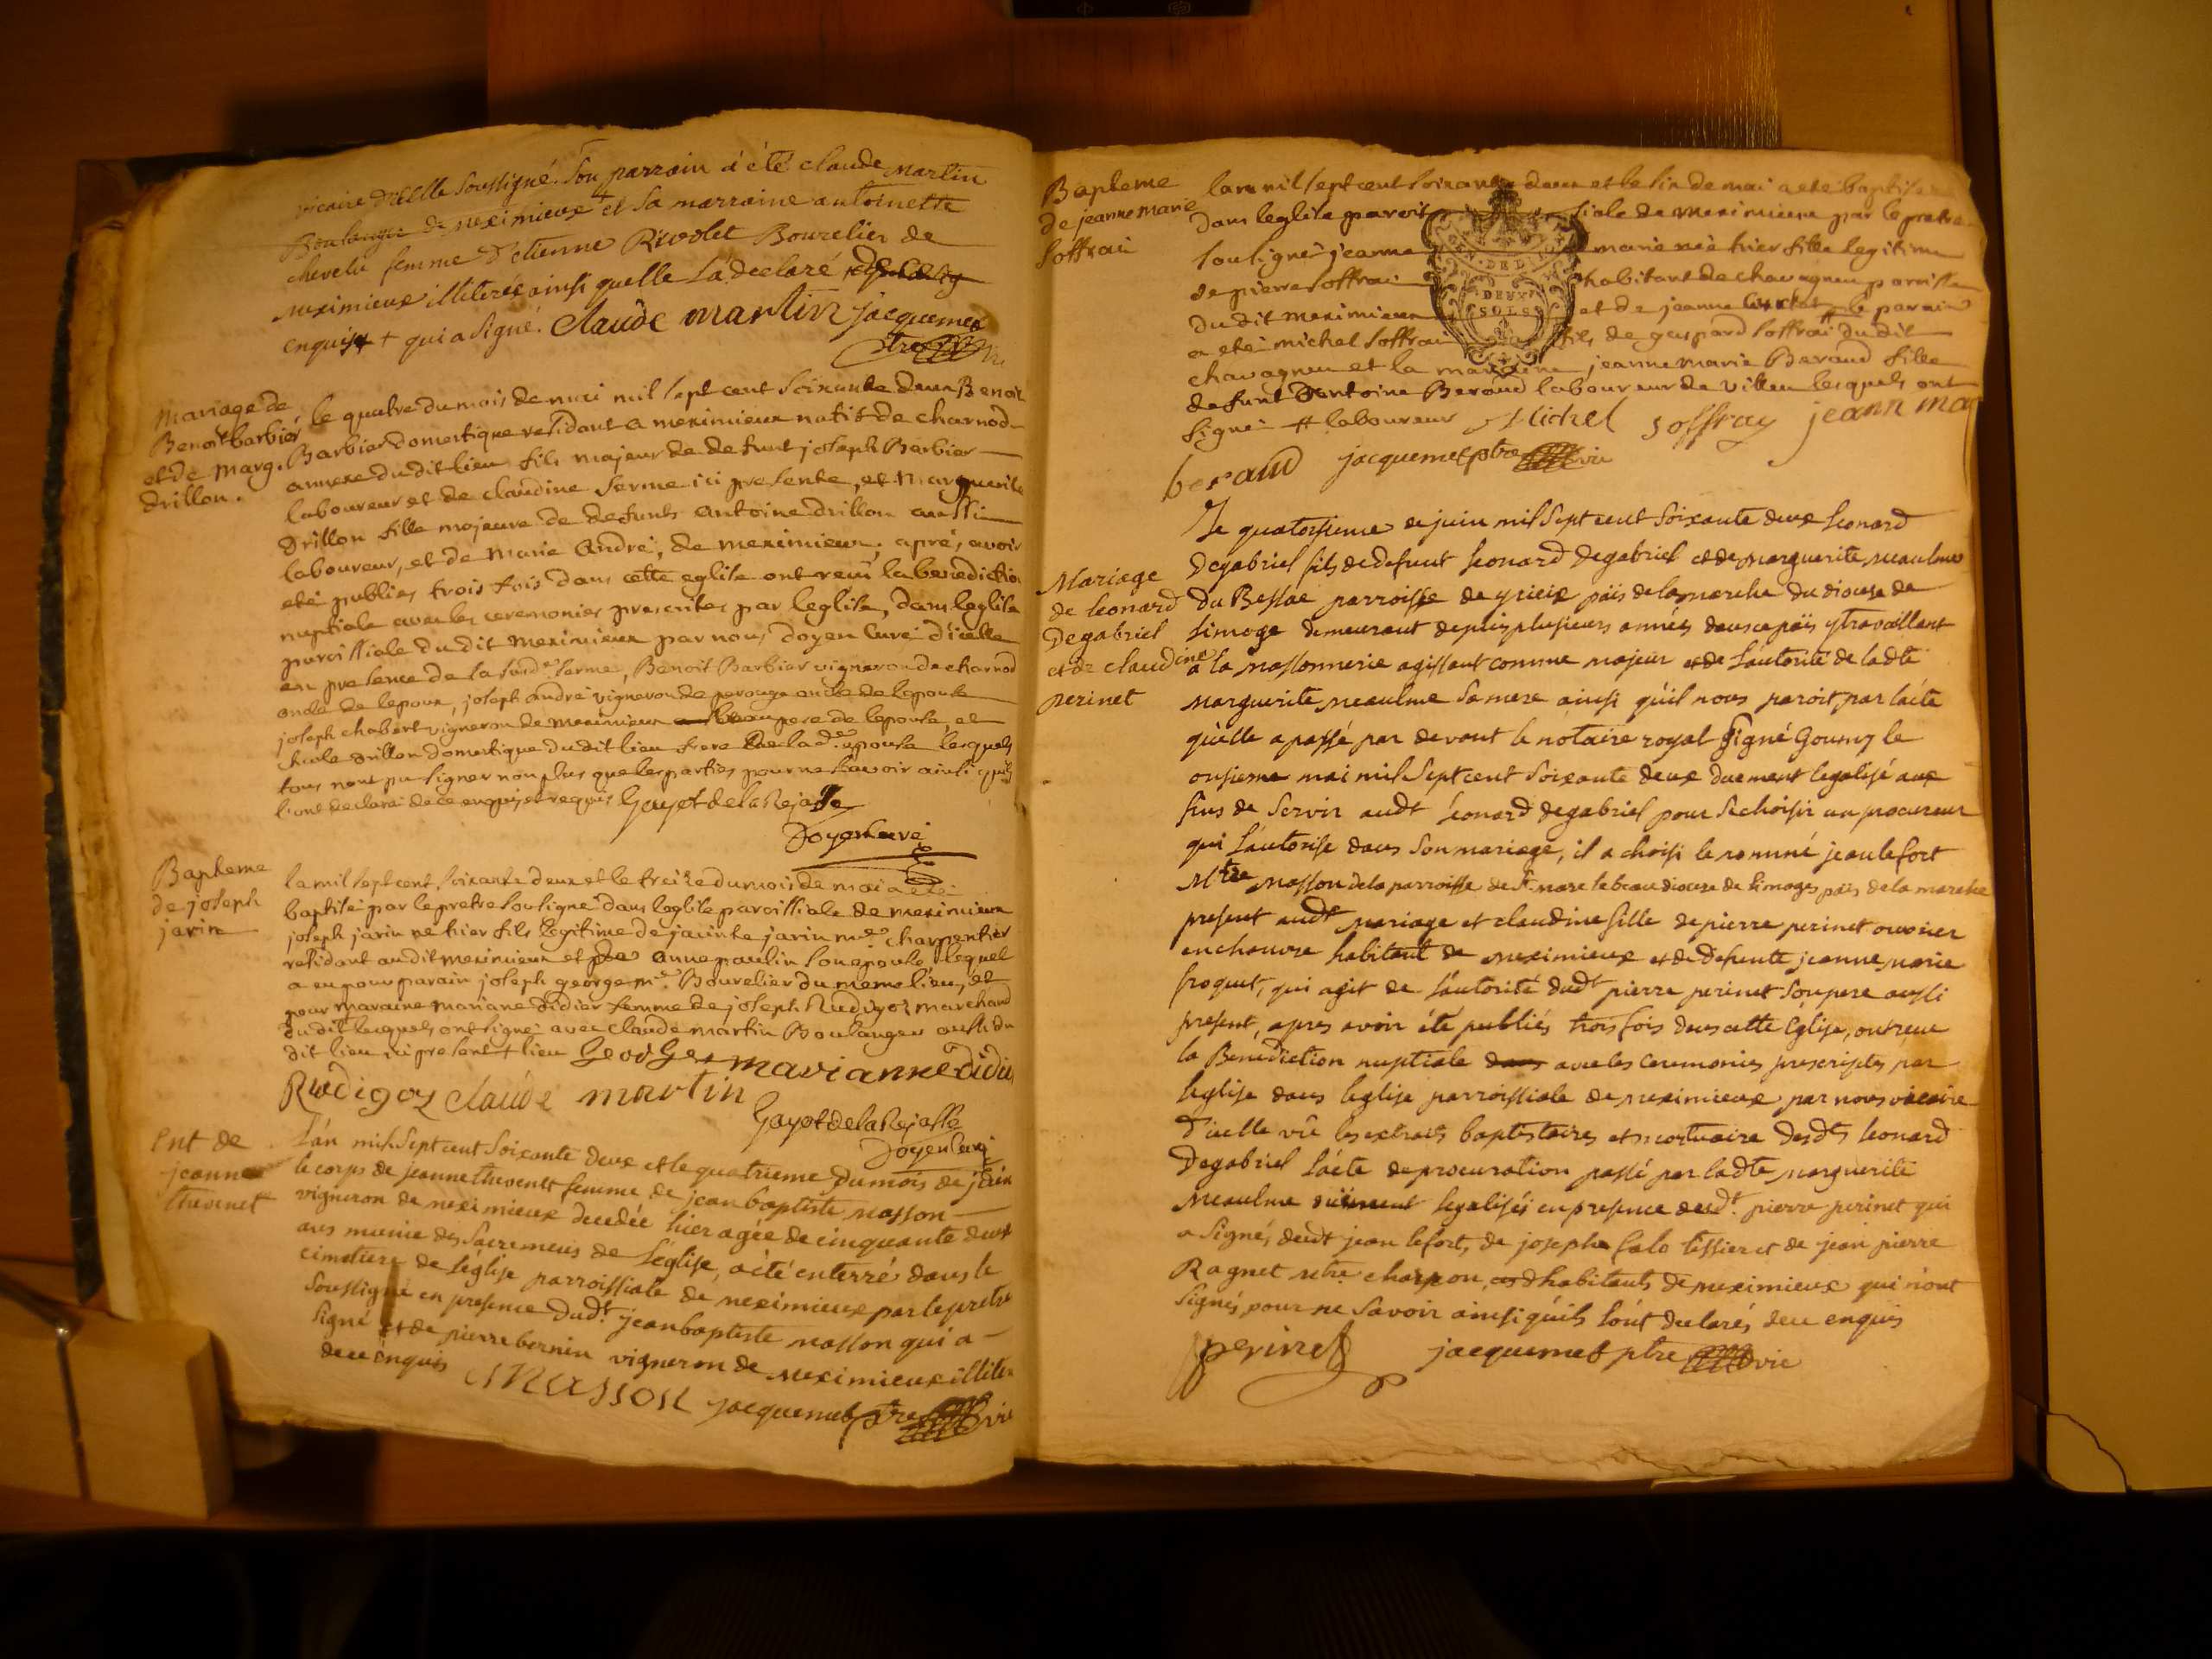 vicaire d'icelle soussigné. Son parrain à été claude martin
Boulanger de meximieux et sa marraine antoinette
chevelu femme d'etienne Rivolet Bourelier de
meximieux illiterée ainsi quelle la declaré
enquise + qui a signé. claude martin jacquemet
ptre vic
mariage de
Benoit barbier
et de marg.
drillon.
le quatre du mois de mai mil sept cent soixante deux Benoit
Barbier domestique residant a meximieux natif de charnod
annexe dudit lieu fils majeur de defunt joseph Barbier
laboureur et de claudine ferme ici presente, et Marguerite
Drillon fille majeure de defunts antoine drillon aussi
laboureur, et de Marie André, de meximieux, apres avoir
eté publies trois fois dans cette eglise ont recu la benediction
nuptiale avec les ceremonies prescrites par leglise, dans leglise
paroissiale du dit meximieux par nous doyen curé d'icelle
en presence de la susd.e ferme, Benoit Barbier vigneron de charnod
oncle de lepoux, joseph andré vigneron de perouge oncle de lepouse
joseph chabert vigneron de meximieux beaupere de lepouse, et
drillon domestique dudit lieu frere de la d.e epouse lesquels
tous nont pu signer non plus que les parties pour ne scavoir ainsi quils
l'ont declaré de ce enquis et requis Gayot de la Rejasse
Doyen curé
Bapteme
de joseph
jarin
lan mil sept cent soixante deux et le treize du mois de mai a eté
baptisé par le pretre soussigné dans leglise paroissiale de meximieux
joseph jarin né hier fils legitime de jacinte jarin m.e charpentier
residant audit meximieux et anne paulin son epouse lequel
a eu pour parain joseph george m.e Bourelier du meme lieu, et
pour maraine mariane didier femme de joseph Rudigoz marchand
du dit lesquels ont signé avec claude martin Boulanger aussi du
dit lieu ici present + lieu George marianne didier
Rudigoz claude martin
Gayot de la Rejasse
Doyen curé
Ent de
jeanne
thevenet
L'an mil sept cent soixante deux et le quatrieme du mois de juin
le corps de jeanne thevenet femme de jean baptiste masson
vigneron de meximieux decedée hier agée de cinquante deux
ans munie des sacremens de l'eglise, a été enterrés dans le
cimetiere de l'église parroissiale de meximieux par le pretre
soussigné en presence dudt. jean baptiste masson qui a
signé et de pierre bernin vigneron de meximieux illiteré
de ce enquis Masson jacquemet ptre vic
Bapteme
de jeanne marie
soffrai
lan mil sept cent soixante deux et le six de mai a eté baptisée
dans leglise paroissiale de meximieux par le pretre
soussigné jeanne marie née hier fille legitime
de pierre soffrai habitant de chavagneu paroisse
du dit meximieux et de jeanne le parain
a eté michel soffrai fils de gaspard soffrai # du dit
chavagneu et la maraine jeanne marie Beraud fille
defunt d'antoine Beraud laboureur de villeu lesquels ont
signé # laboureur Michel soffray jeann ma
beraud jacquemet ptre vic
DEUX
SOLS
Mariage
de leonard
Degabriel
et de claudine
perinet
Le quatorsieme de juin mil sept cent soixante deux leonard
degabriel fils de defunt leonard degabriel et de marguerite meaulme
du Bessac parroisse de païs de la marche du diocese de
limoge demeurant depuis plusieurs années dans ce païs y travaillant
a la massonnerie agissant comme majeur et de l'autorité de ladte
marguerite meaulme sa mere ainsi qu'il nous paroit, par l'acte
qu'elle a passé par devant le notaire royal signé Goumy le
onsieme mai mil sept cent soixante deux duement legalisé aux
fins de servir audt leonard degabriel pour se choisir un procureur
qui l'autorise dans son mariage, il a choisi le nommé jean lefort
Mtre masson de la parroisse de St marc lebeau diocese de limoges païs de la marche
present audt mariage et claudine fille de pierre perinet ouvrier
en chanvre habitant de meximieux et de defunte jeanne marie
froquet, qui agit de l'autorité dudt pierre perinet son pere aussi
present, apres avoir été publiés trois fois dans cette Eglise, ont recu
la Benediction nuptiale avec les ceremonies prescriptes par
l'eglise dans l'eglise parroissiale de meximieux par nous vicaire
d'icelle vû les extraits baptistaires et mortuaire desdts leonard
degabriel l'acte de procuration passé par ladte marguerite
meaulme duement legalisés en presence dudt. pierre perinet qui
a signé, dudt jean lefort, de joseph falo tissier et de jean pierre
Ragnet mtre charpon, habitants de meximieux qui n'ont
signés pour ne savoir ainsi qu'ils l'ont declarés de ce enquis
perinet jacquemet ptre vic